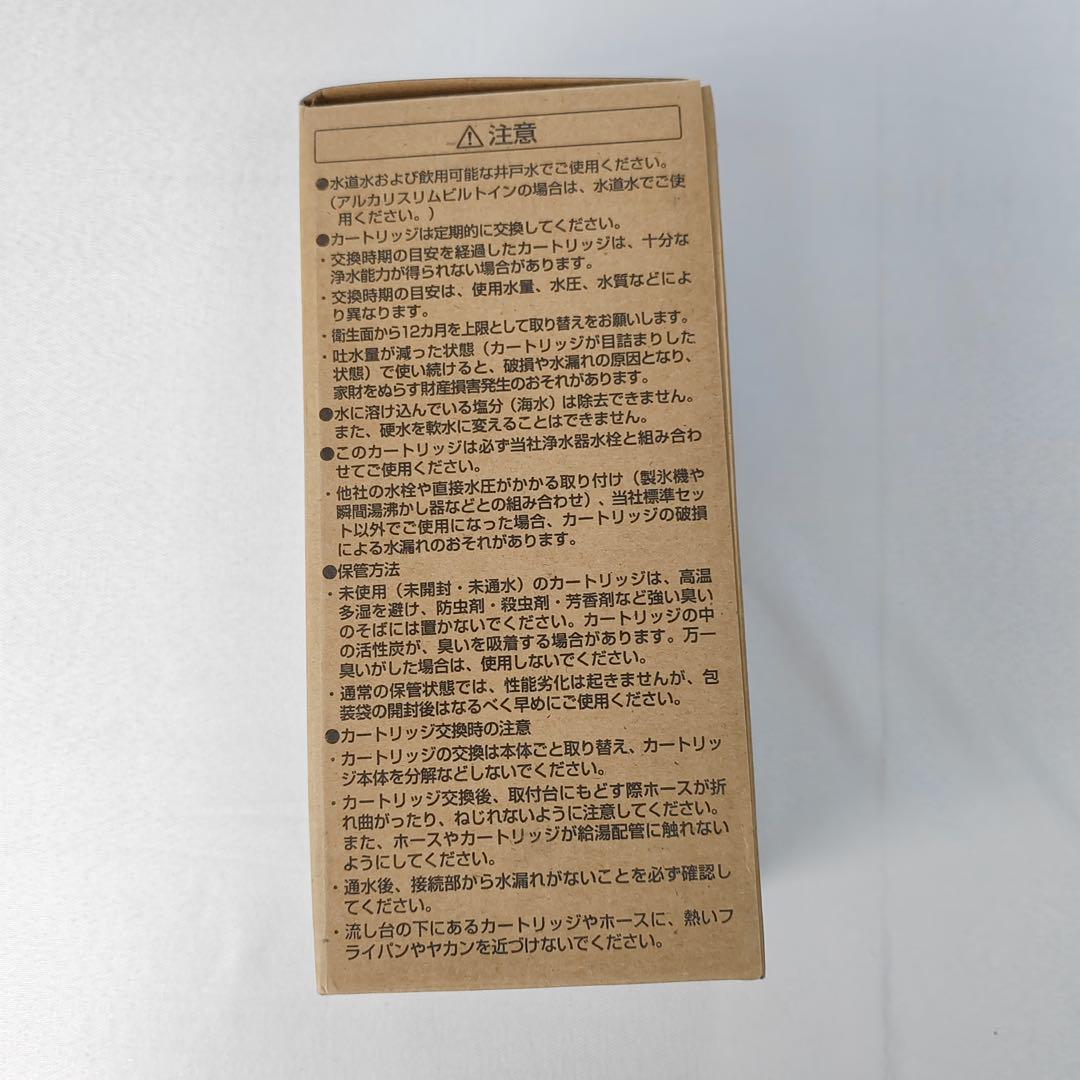 ⚠注意
●水道水および飲用可能な井戸水でご使用ください。
(アルカリスリムビルトインの場合は、水道水でご使
用ください。)
●カートリッジは定期的に交換してください。
・交換時期の目安を経過したカートリッジは、十分な
浄水能力が得られない場合があります。
・交換時期の目安は、使用水量、水圧、水質などによ
り異なります。
・衛生面から12カ月を上限として取り替えをお願いします。
・吐水量が減った状態(カートリッジが目詰まりした
状態)で使い続けると、破損や水漏れの原因となり、
家財をぬらす財産損害発生のおそれがあります。
●水に溶け込んでいる塩分(海水)は除去できません。
また、硬水を軟水に変えることはできません。
●このカートリッジは必ず当社浄水器水栓と組み合わ
せてご使用ください。
・他社の水栓や直接水圧がかかる取り付け(製氷機や
瞬間湯沸かし器などとの組み合わせ)、当社標準セッ
ト以外でご使用になった場合、カートリッジの破損
による水漏れのおそれがあります。
●保管方法
・未使用(未開封・未通水)のカートリッジは、高温
多湿を避け、防虫剤・殺虫剤・芳香剤など強い臭い
のそばには置かないでください。カートリッジの中
の活性炭が、臭いを吸着する場合があります。万一
臭いがした場合は、使用しないでください。
・通常の保管状態では、性能劣化は起きませんが、包
装袋の開封後はなるべく早めにご使用ください。
●カートリッジ交換時の注意
・カートリッジの交換は本体ごと取り替え、カートリッ
ジ本体を分解などしないでください。
・カートリッジ交換後、取付台にもどす際ホースが折
れ曲がったり、ねじれないように注意してください。
また、ホースやカートリッジが給湯配管に触れない
ようにしてください。
・通水後、接続部から水漏れがないことを必ず確認し
てください。
・流し台の下にあるカートリッジやホースに、熱いフ
ライパンやヤカンを近づけないでください。